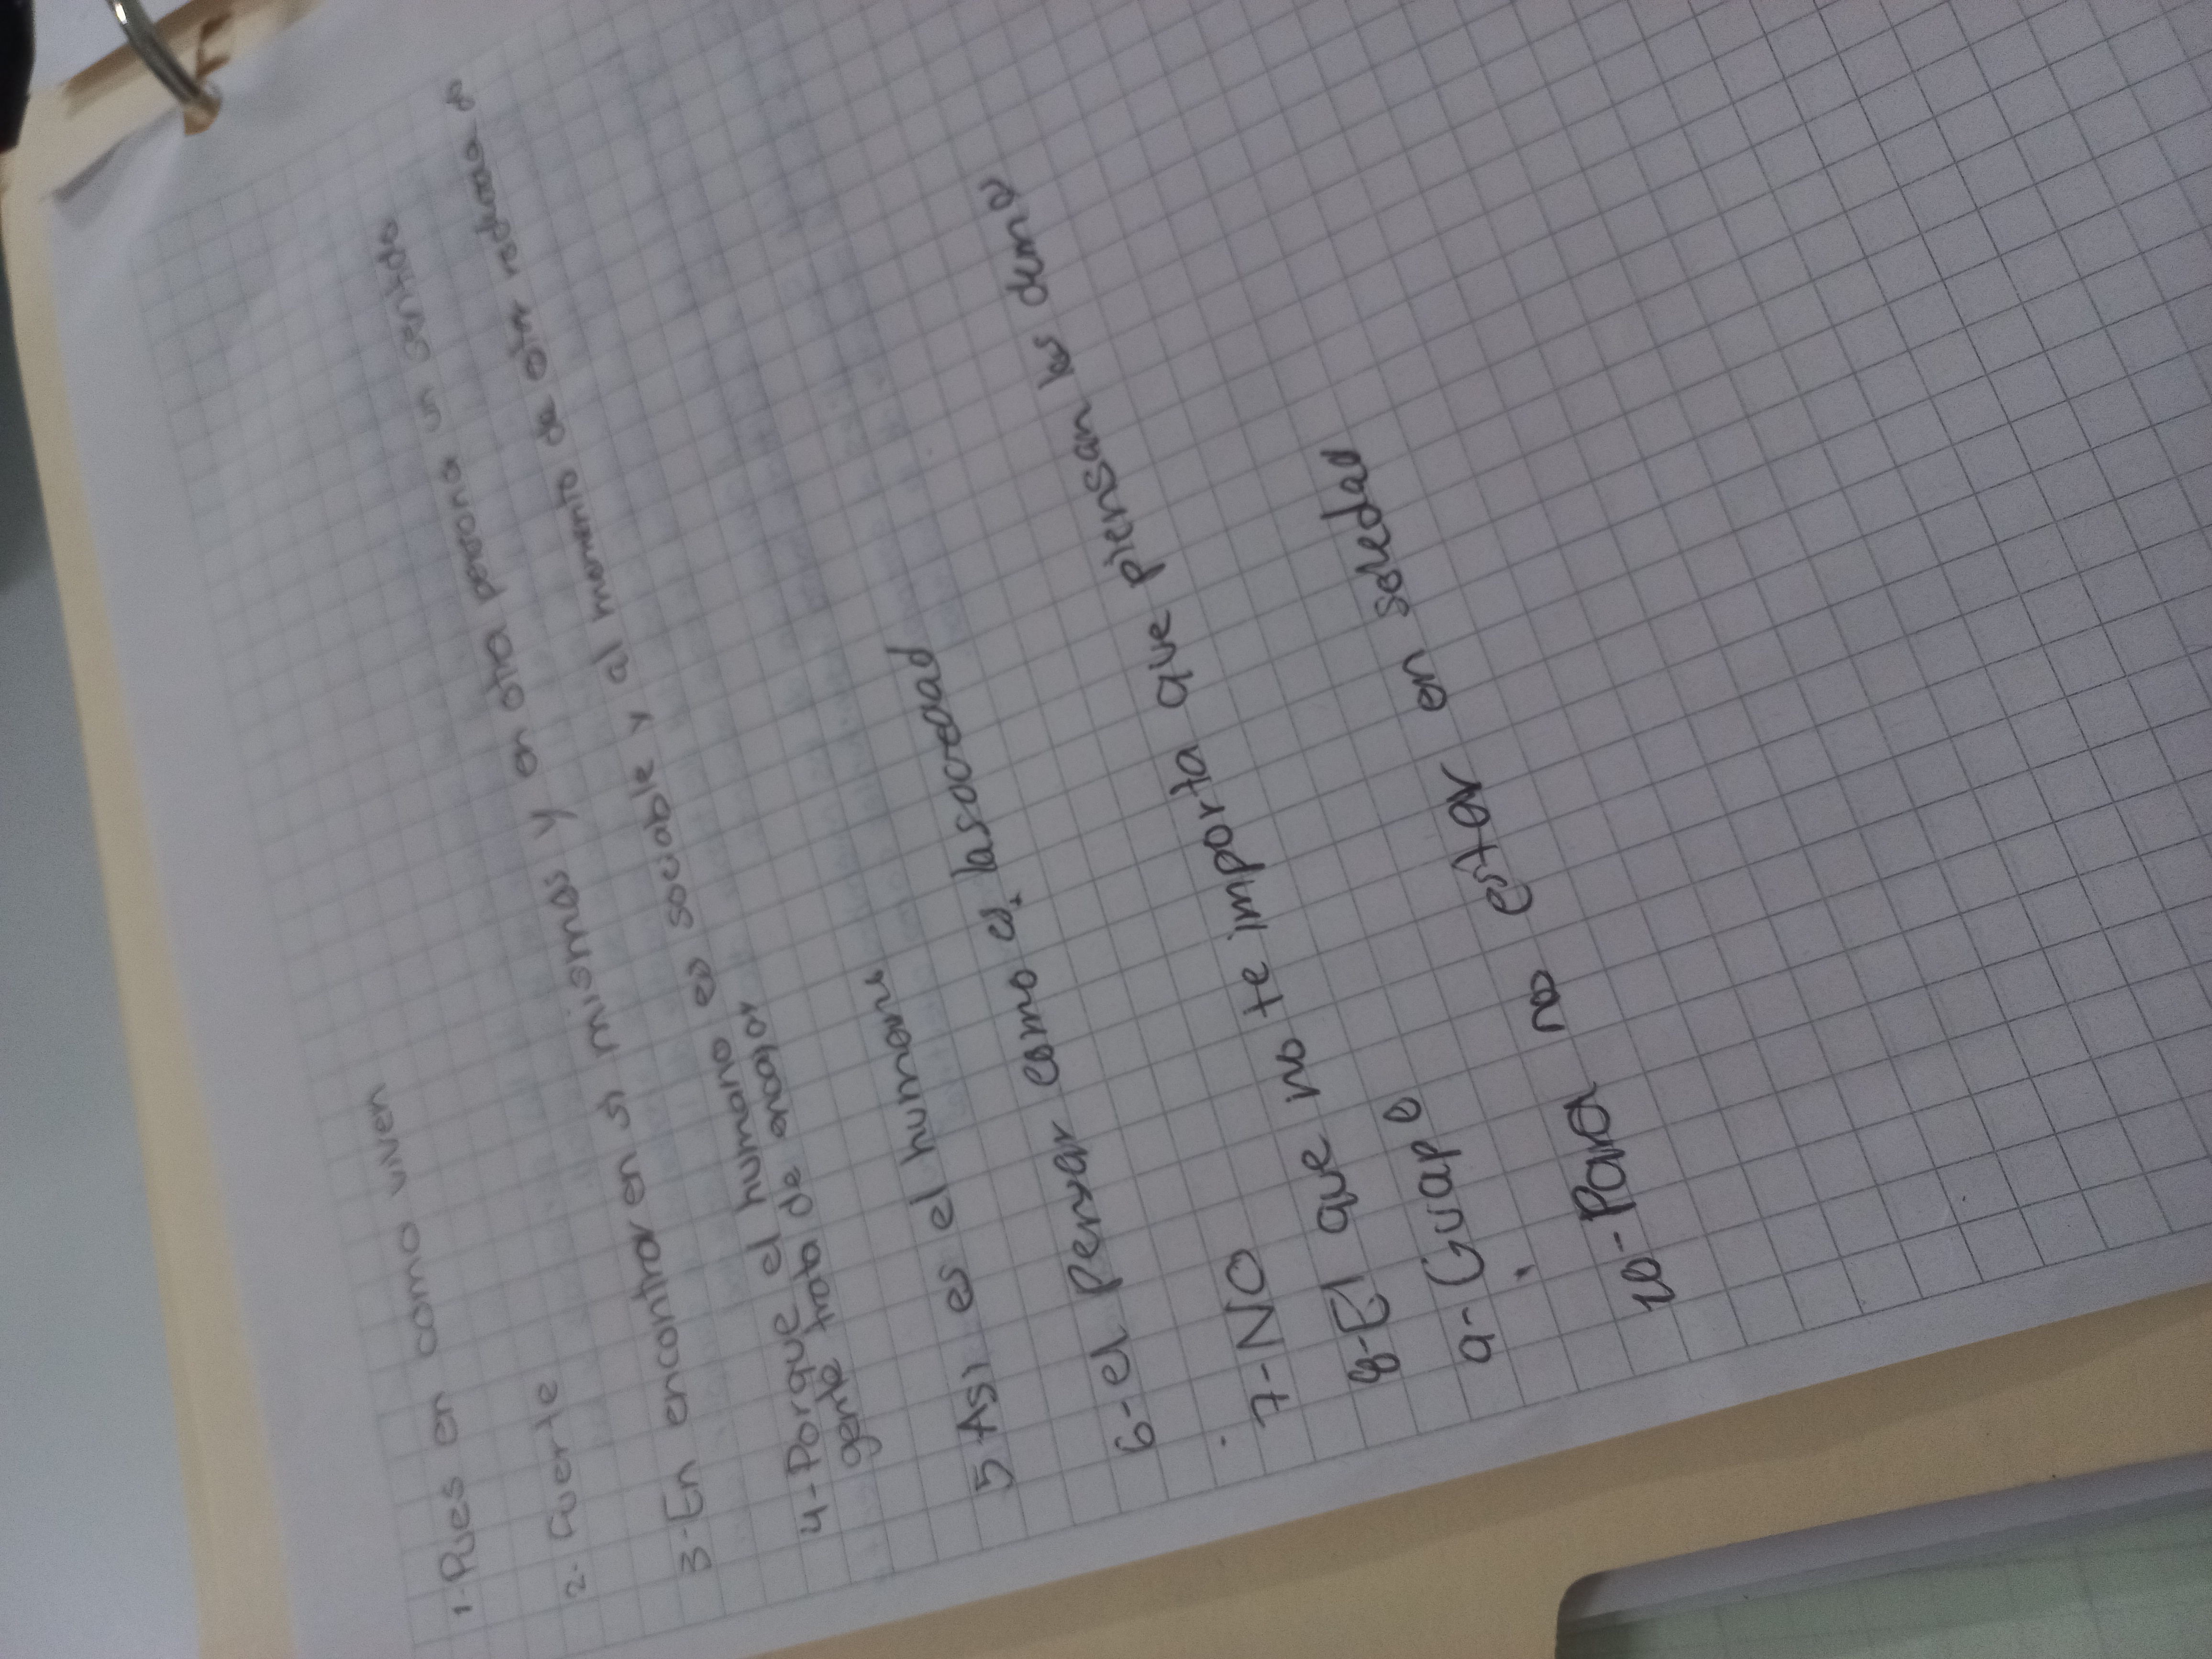 1-Pues en como viven
2- Fuerte
3-En encontrar en si mismas y en otra persona un sentido
4-Porque el humano es sociable y al momento de
gente trata de encajar
5 Asi es el humano
6-el Pensar como es la sociedad
7-NO
8-El que no te importa que piensan los demas
9-Guapo
10-Para no estar en soledad